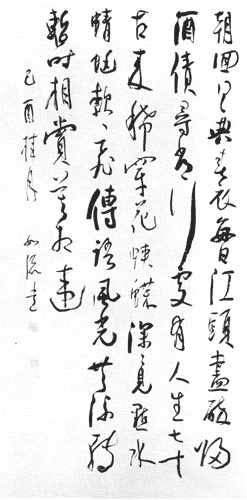 朝回日々典春衣每日江頭盡醉歸
酒債尋常行處有人生七十
古來稀穿花蛺蝶深々見點水
蜻蜓款々飛傳語風光共流轉
暫時相賞莫相違
己酉桂月 書